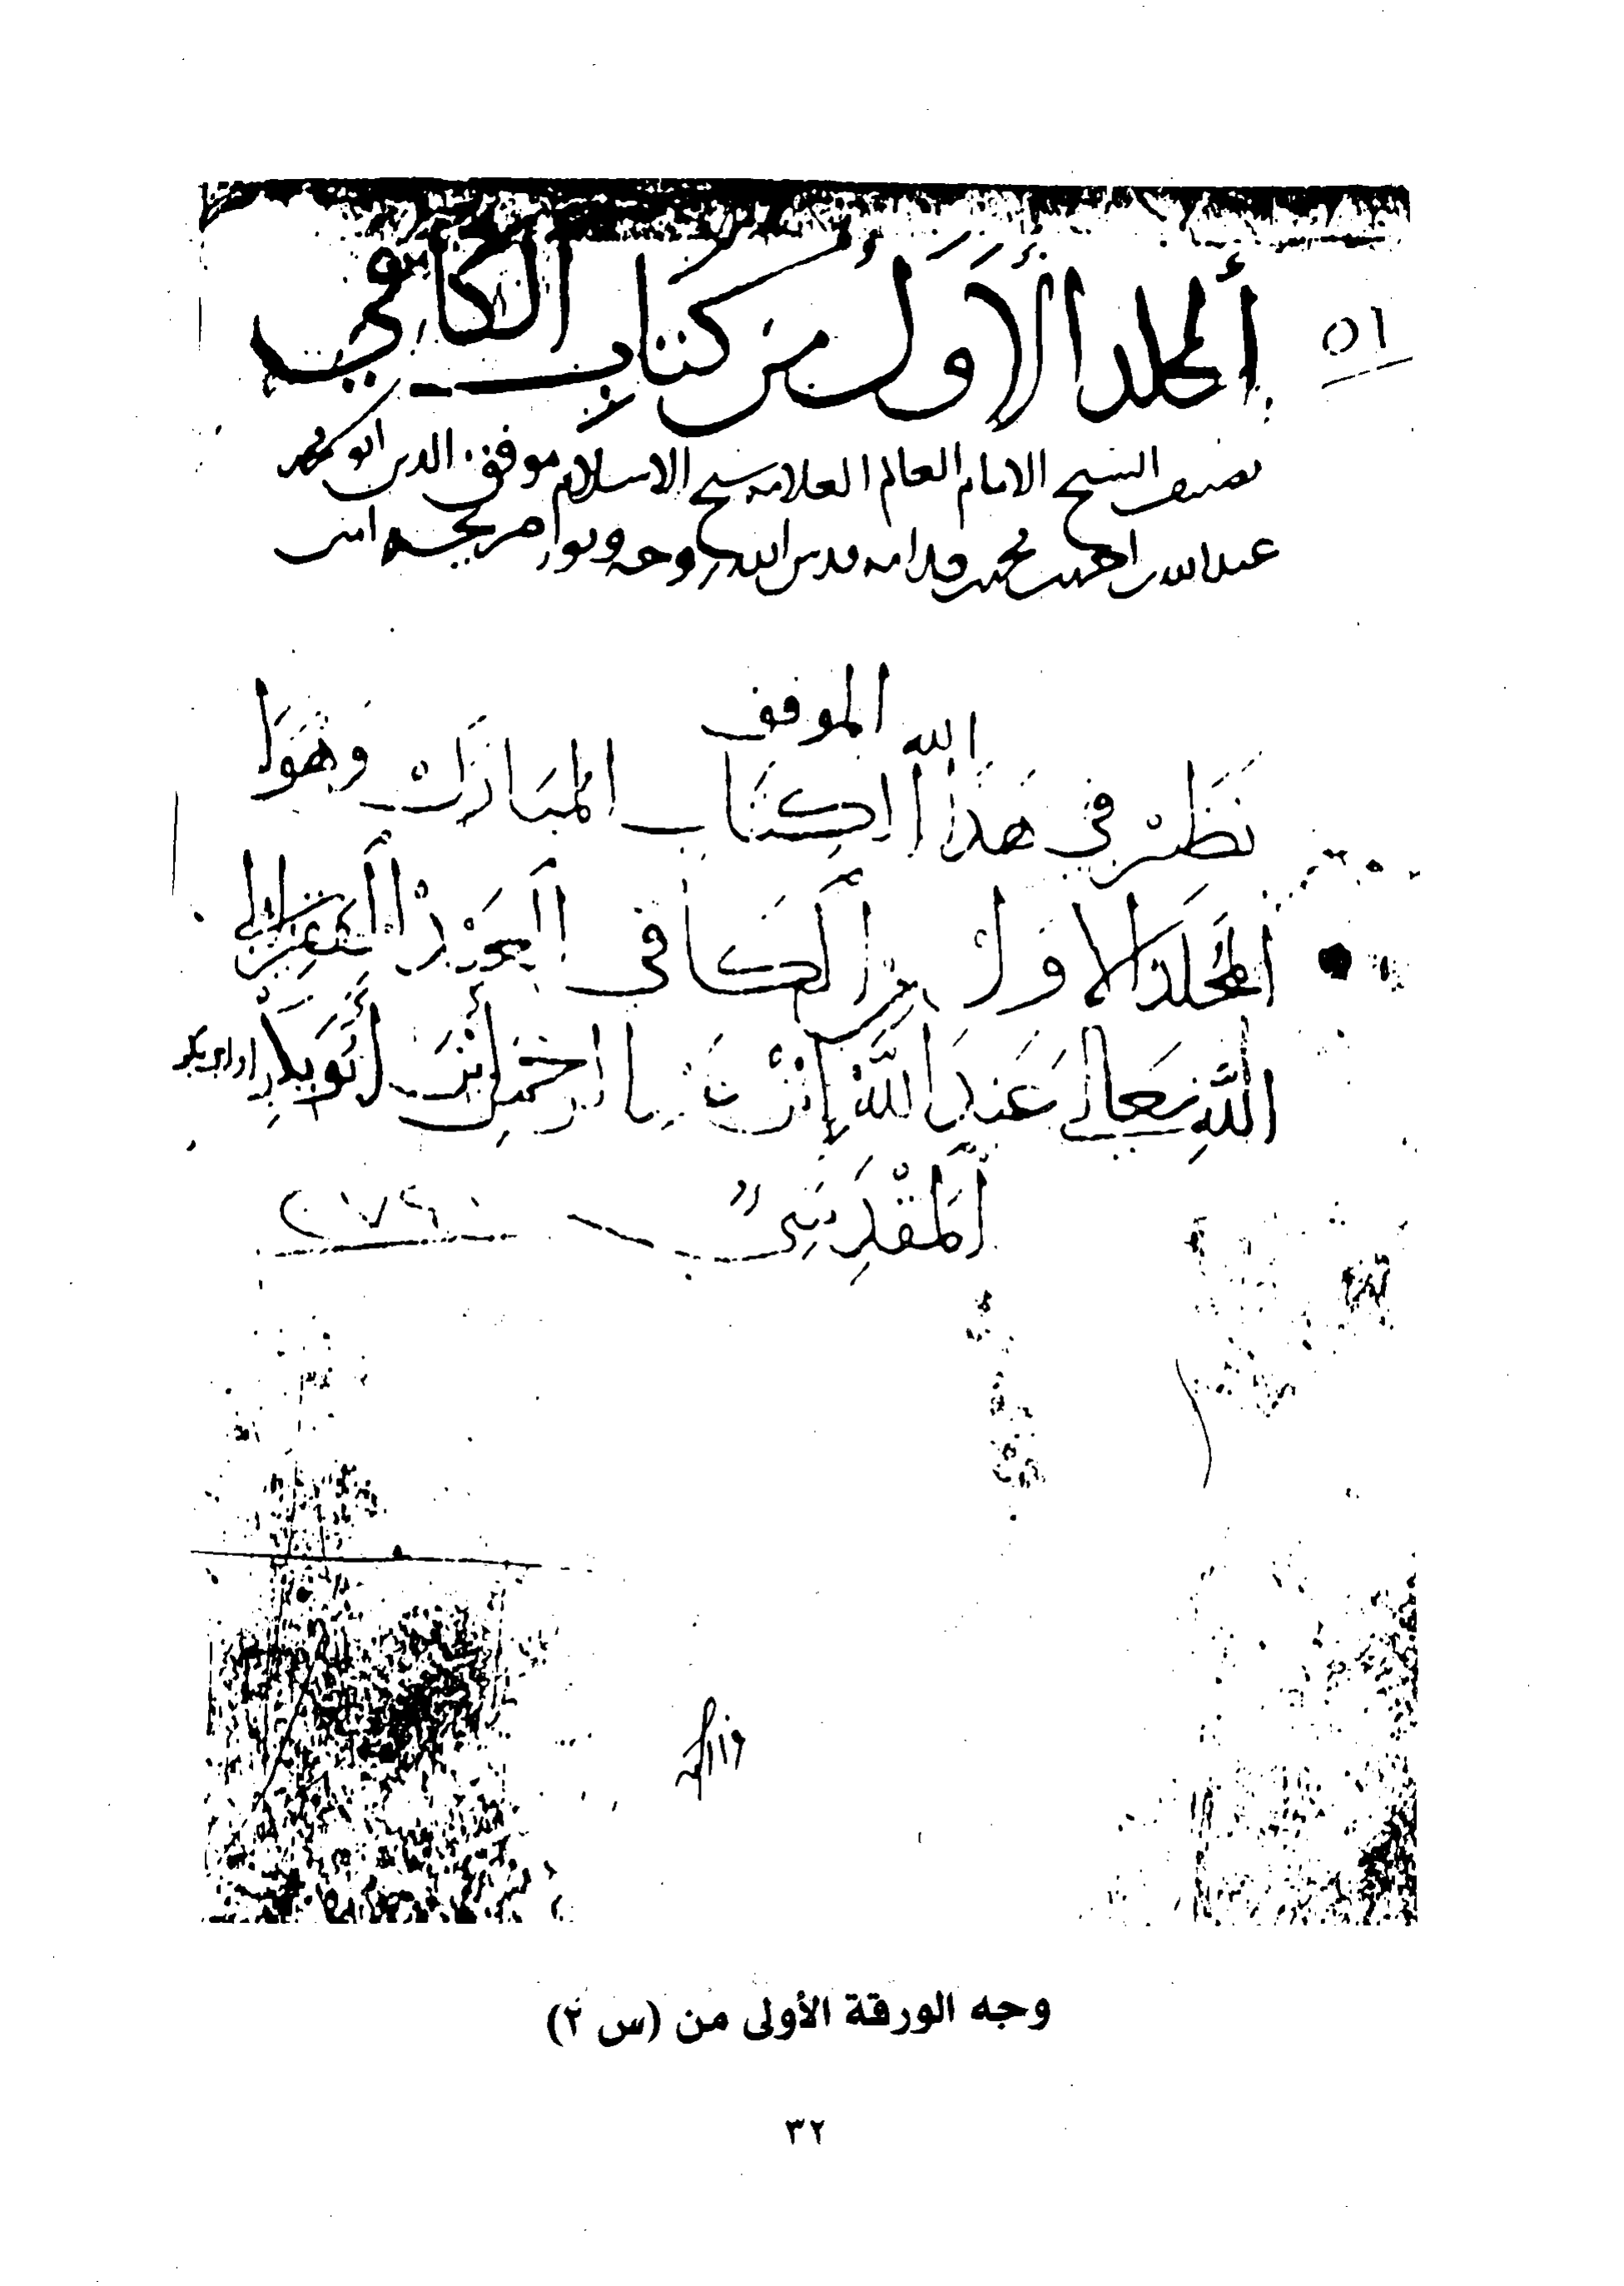 ٥١
المجلد الأول من كتاب الكافي
تصنيف الشيخ الامام العالم العلامه شيخ الاسلام موفق الدين ابو محمد
عبدالله بن احمد بن محمد بن قدامه قدس الله روحه ونور ضريحه امين
الله الموفق
نظر في هذا الكتاب المبارك وهو ا
المجلد الاول من الكافي الى
الله تعالى عند الله ابن احمد ابن
المقدسي
وجه الورقة الأولى من (س ٢)
٣٢